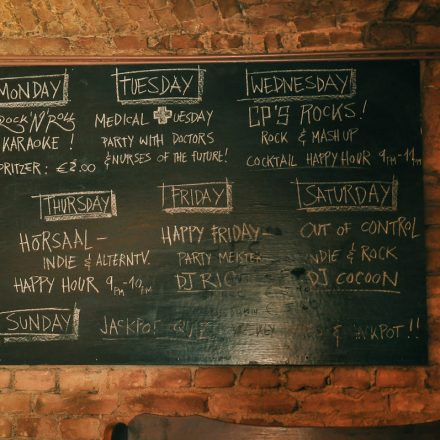 MONDAY
ROCK'N'ROLL
KARAOKE!
SPRITZER: €2.00
TUESDAY
MEDICAL TUESDAY
PARTY WITH DOCTORS
&NURSES OF THE FUTURE!
WEDNESDAY
CP'S ROCKS!
ROCK & MASH UP
COCKTAIL HAPPY HOUR 9PM-11PM
THURSDAY
HÖRSAAL-
INDIE & ALTERNTV.
HAPPY HOUR 9PM-10PM
FRIDAY
HAPPY FRIDAY-
PARTY MEISTER
DJ
SATURDAY
OUT OF CONTROL
INDIE & ROCK
DJ COCOON
SUNDAY
JACKPOT QUIZ & JACKPOT!!